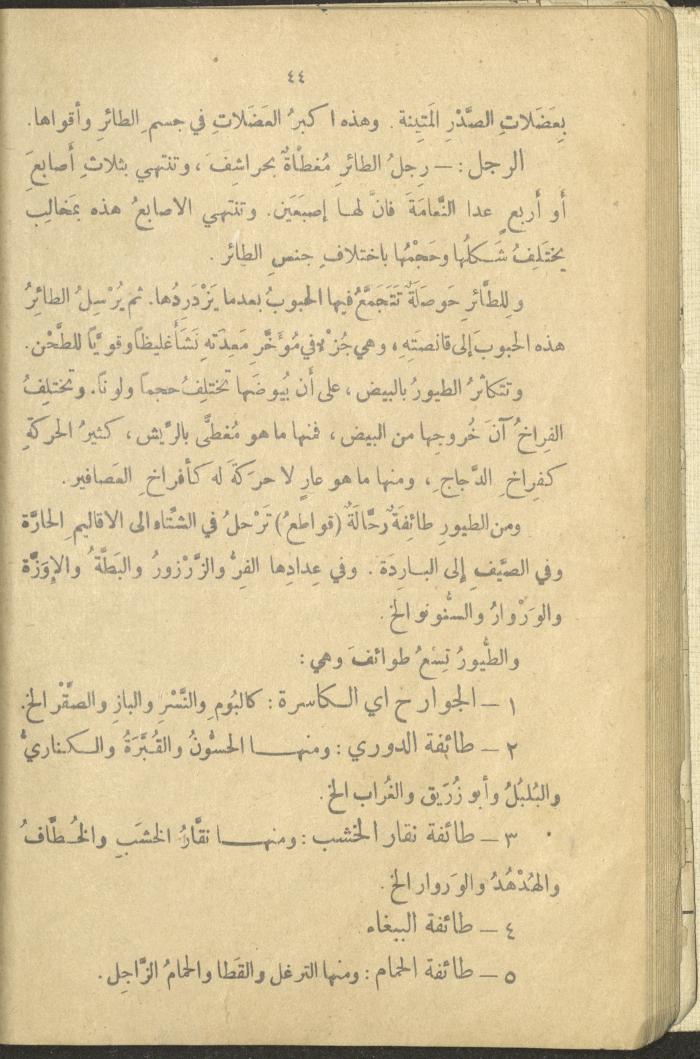 ٤٤
بِعَضَلَاتِ الصَّدْرِ المَتِينة . وهذه اكبرُ العَضَلاتِ في جسمِ الطائرِ وأقواها.
الرجل : – رِجلُ الطائرِ مُغطَّاةٌ بحراشِفَ ، وتنتهي بثلاثِ أصابعَ
أو أربعٍ عدا النَّعامَةَ فانَّ لها إصبَعَين. وتنتهي الاصابعُ هذه بمَخالِبَ
يختَلِفُ شَكلُها وحَجْمُها باختلافِ جنسِ الطائر .
وللطَّائرِ حَوصَلَةٌ تَتَجَمَّعُ فيها الحبوبُ بعدما يَزْدَرِدُها. ثم يُرْسِلُ الطائرُ
هذه الحبوبَ إلى قانصَتِهِ ، وهي جُزْءٌ في مُؤَخَّرِ مَعِدَتهِ نَشَأَ غليظاً وقويًّا للطَّحْن.
وتتكاثرُ الطيورُ بالبيض ، على أن بُيوضَها تختلِفُ حجماً ولوناً. وتختلِفُ
الفِراخُ آنَ خُروجِها من البيض ، فمنها ما هو مُغطَّى بالرِّيش ، كثيرُ الحركةِ
كفِراخِ الدَّجاجِ ، ومنها ما هو عارٍ لا حرَكَةَ له كأفراخِ العَصافير.
ومن الطيورِ طائِفَةٌ رحَّالَةٌ (قواطعُ) تَرْحلُ في الشتَاء الى الاقاليمِ الحارَّة
وفي الصيَّفِ إلى البارِدَة . وفي عِدادِها الفِرُّ والزَّرْزورُ والبَطَّةُ والإوَزَّة
والوَرْوارُ والسنُونو الخ.
والطُّيورُ تِسْعُ طوائفَ وهي :
١ – الجوارح اي الكاسرة : كالبُومِ والنَّسْرِ والبازِ والصقْر الخ.
٢ – طائفة الدوري : ومنها الحسُّونُ والقُبَّرَةُ والكناريُّ
والبُلبُلُ وأبو زُرَيق والغُراب الخ.
٣ – طائفة نقار الخشب : ومنها نقَّارُ الخشَبِ والخُطَّافُ
والهُدْهُدُ والوَروار الخ.
٤ – طائفة الببغاء
٥ – طائفة الحمام : ومنها الترغل والقَطا والحمامُ الزَّاجِل.